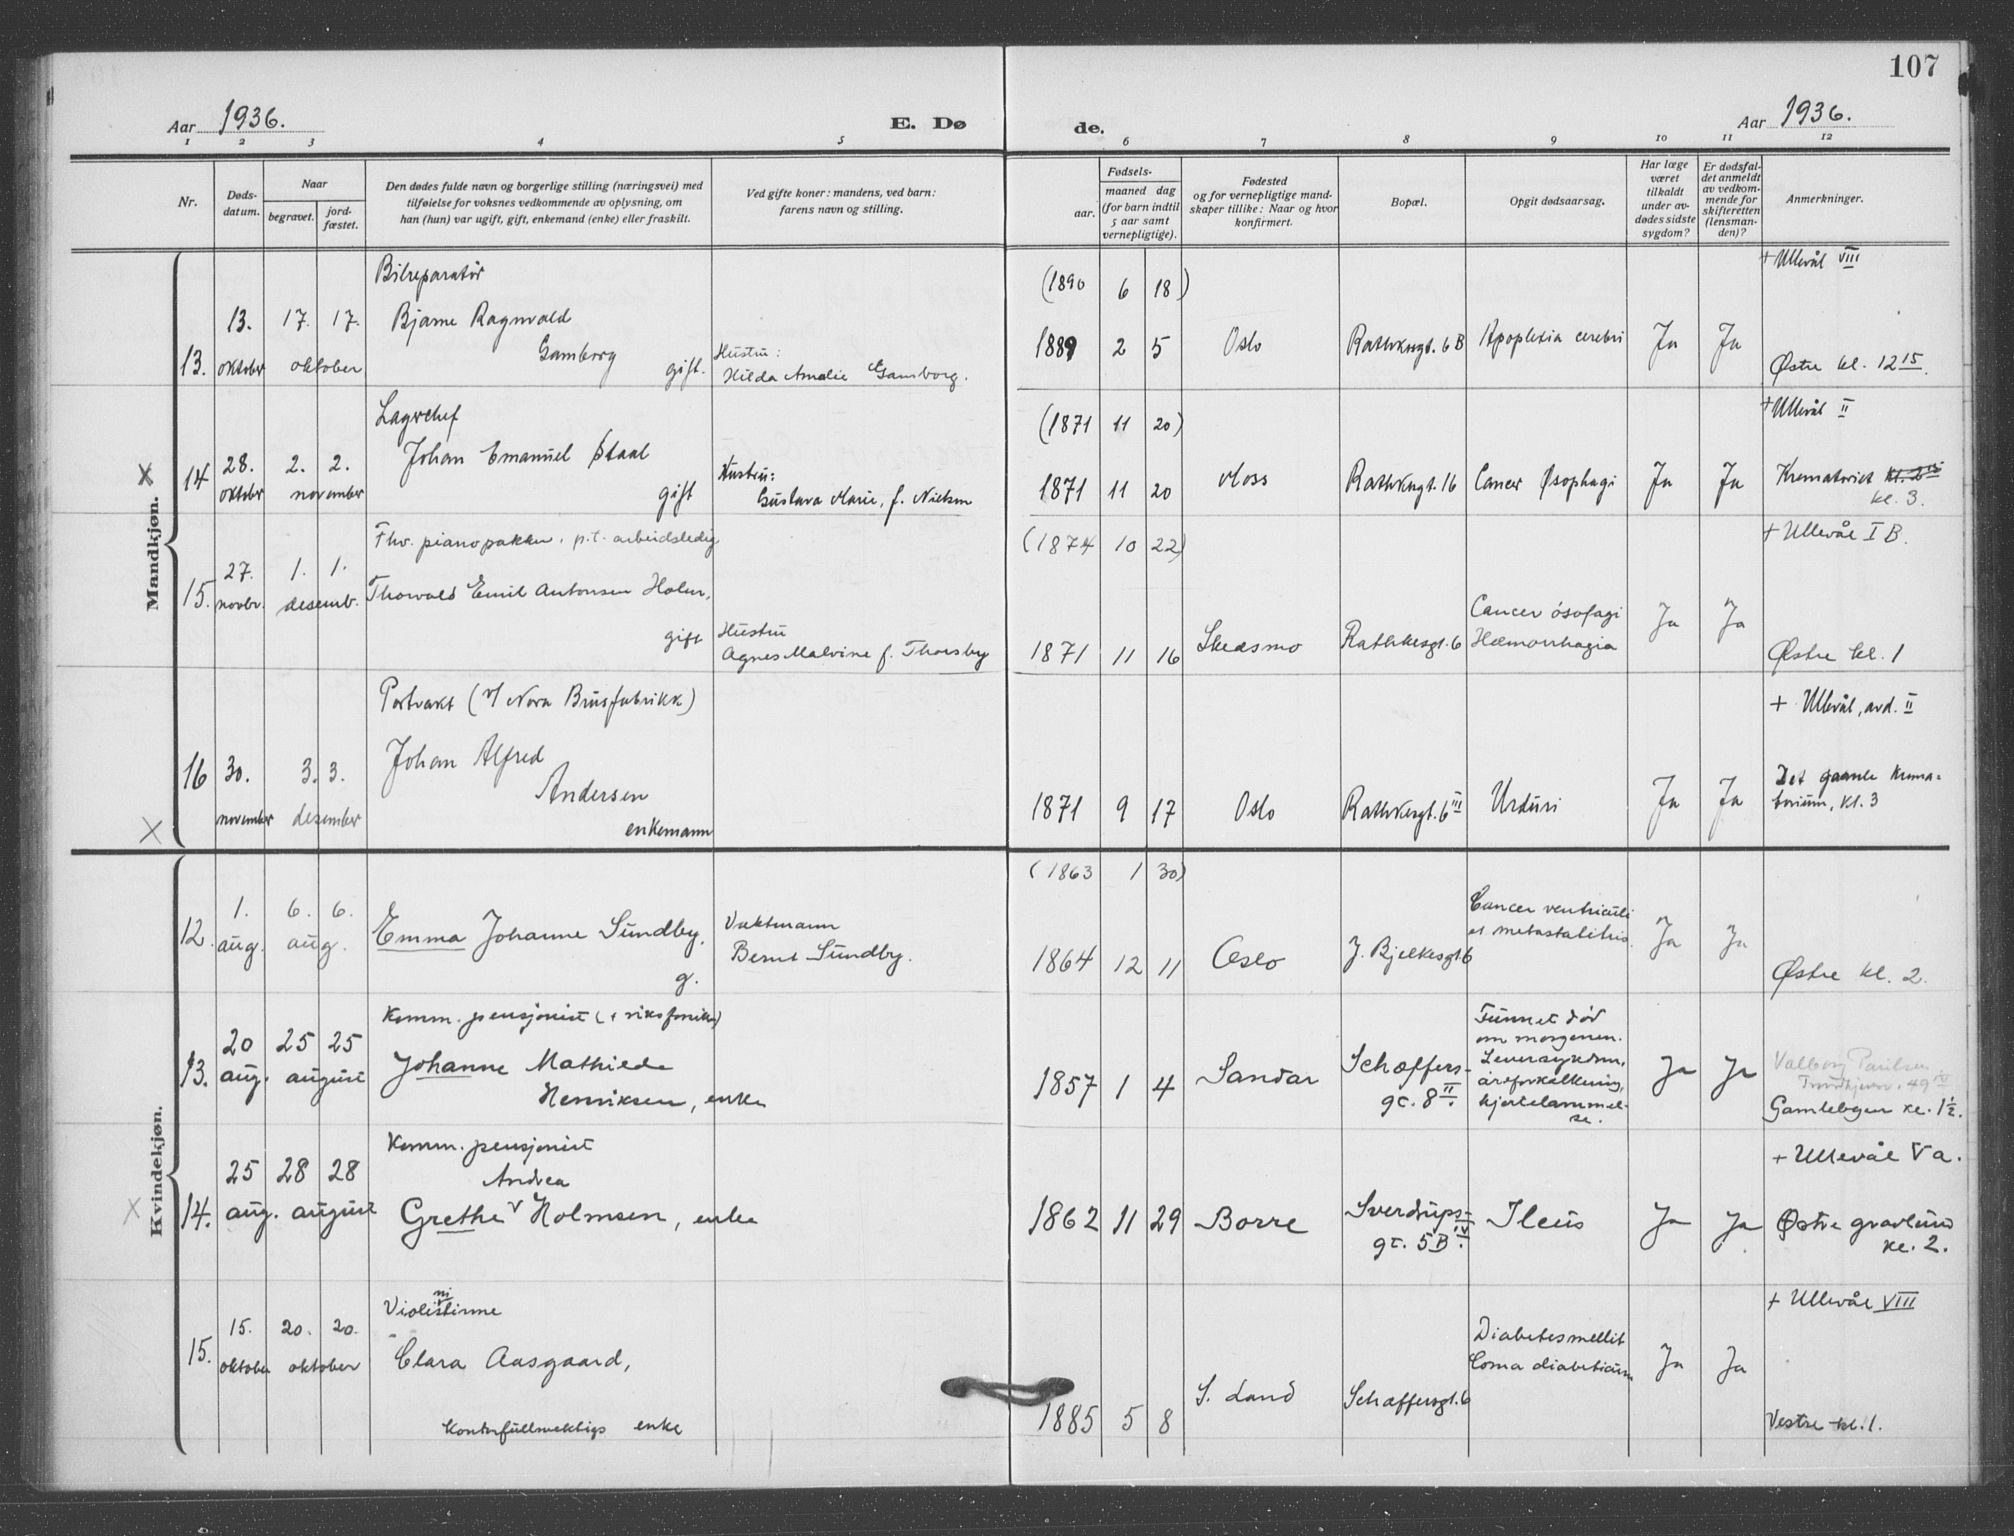 107
Aar 1936.
E. Dø de.
Aar 1936.
1 2 3 4 5 6 7 8 9 10 11 12
Nr.
Døds-
datum.
Naar
begravet.
jord-
fæstet.
Den dødes fulde navn og borgerlige stilling (næringsvei) med
tilføielse for voksnes vedkommende av oplysning, om
han (hun) var ugift, gift, enkemand (enke) eller fraskilt.
Ved gifte koner: mandens, ved barn:
farens navn og stilling.
Fødsels-
aar.
maaned dag
(for barn indtil
5 aar samt
vernepligtige).
Fødested
og for vernepligtige mand-
skaper tillike: Naar og hvor
konfirmert.
Bopæl.
Opgit dødsaarsag.
Har læge
været
tilkaldt
under av-
dødes sidste
sygdom?
Er dødsfal-
det anmeldt
av vedkom-
mende for
skifteretten
(lensman-
den)?
Anmerkninger.
Mandkjøn.
Bilreparatør
(1890 6 18)
+ Ullevål VIII
13. 17. 17. Bjarne Ragnvald
13. oktober oktober Gamborg gift.
Hustru:
Hilda Amalie Gamborg.
1889 2 5 Oslo Rathkesgt. 6 B Apoplexia cerebri Ja Ja
Østre kl. 12 15.
Lagerchef
(1871 11 20)
+ Ullevål II
28. 2. 2. Johan Emanuel Staal
14 oktober november gift
Hustru:
Gustava Marie, f. Nielsen
1871 11 20 Moss Rathkesgt. 16 Cancer Øsophagi Ja Ja
Krematoriet
kl. 3.
Fhv. pianopakker. p.t. arbeidsledig
(1874 10 22)
+ Ullevål I B.
27. 1. 1.
15. novbr. desemb. Thorvald Emil Antonsen Holm,
gift
Hustru
Agnes Malvine f. Thorsby
1871 11 16 Skedsmo Rathkesgt. 6
Cancer øsofagi
Hæmorrhagia
Ja Ja
Østre kl. 1
Portvakt (v/ Nora Brusfabrikk)
+ Ullevål, avd. II
16 30. 3. 3. Johan Alfred
Andersen
november desember
enkemann
1871 9 17 Oslo Rathkesgt. 6 III Ja Ja
Det gamle Krema-
torium, kl. 3
Kvindekjøn.
(1863 1 30)
1. 6. 6.
12. aug. aug. Emma Johanne Sundby.
g.
Vaktmann
Bernt Sundby.
1864 12 11 Oslo J. Bjelkesgt 6
Cancer ventriculi
Ja Ja
Østre kl. 2.
Komm. pensjonist
20 25 25
13. aug. august
Johanne Mathilde
Henriksen, enke
1857 1 4 Sandar
Schæffers-
gt. 8 II.
Funnet død
om morgenen.
Leversykdom,
åreforkalkning,
hjertelammel-
se.
Ja Ja
Valborg Paulsen
Gamlebyen kl. 1 1/2.
Komm. pensjonist
+ Ullevål V a.
25 28 28
Andrea
14. aug. august Grethe Holmsen, enke
1862 11 29 Borre
Sverdrups-
gt. 5 B IV.
Ileus Ja Ja
Østre gravlund
kl. 2.
Violistinne
ni
+ Ullevål VIII
15. 20. 20.
15. oktober oktober Clara Aasgaard,
Kontorfullmektigs enke
1885 5 8 S. Land Schæffersgt. 6
Diabetes mellit
Coma diabeticum
Ja Ja
Vestre kl. 1.